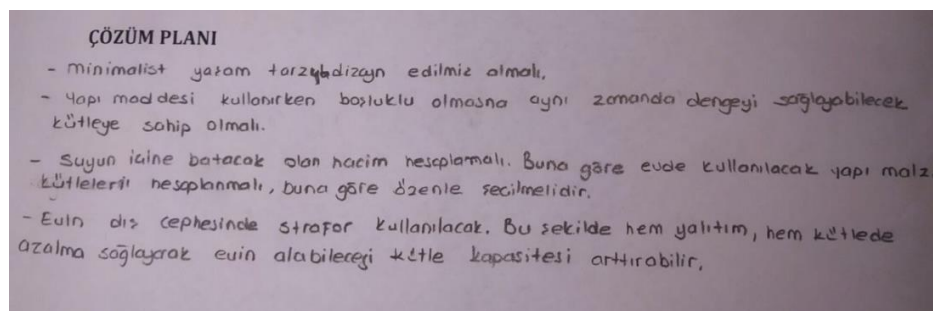 ÇÖZÜM PLANI
- minimalist yaşam tarzıyla dizayn edilmiş olmalı.
- Yapı maddesi kullanırken boşluklu olmasna aynı zamanda dengeyi sağlayabilecek
kütleye sahip olmalı.
- Suyun içine batacak olan hacim hesaplamalı. Buna göre evde kullanılacak yapı malz
kütleleri hesaplanmalı, buna göre özenle seçilmelidir.
- Evin dış cephesinde strafor kullanılacak. Bu şekilde hem yalıtım, hem kütlede
azalma sağlayarak evin alabileceği kütle kapasitesi arttırabilir.